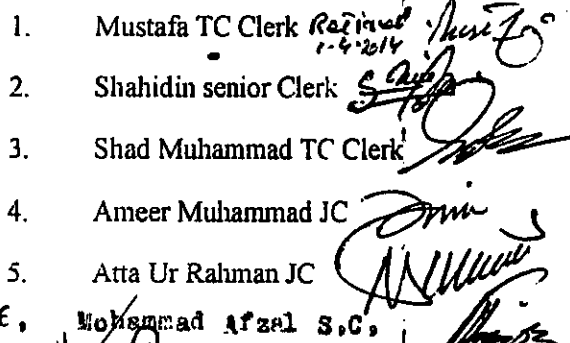 1. Mustafa TC Clerk Retired
1-4-2014
2. Shahidin senior Clerk
3. Shad Muhammad TC Clerk
4. Ameer Muhammad JC
5. Atta Ur Rahman JC
6. Mohammad Afzal S.C.